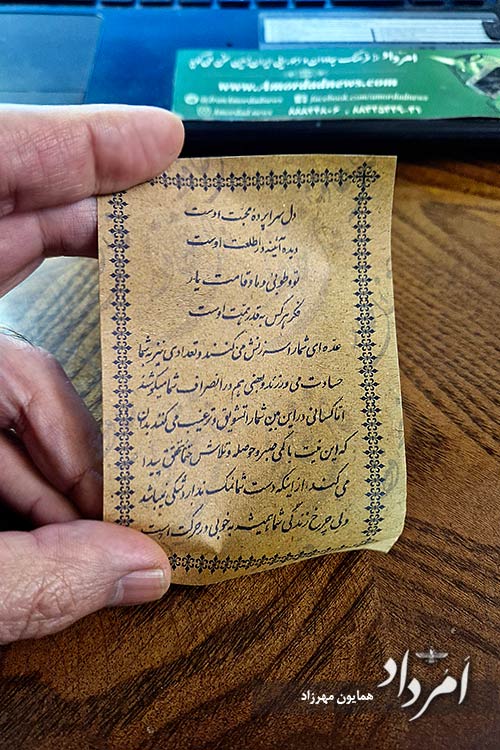 امرداد
www.Amordadnews.com
facebook.com/amordadnews
/Amordadnews
دل سراپرده محبت اوست
دیده آئینه دار طلعت اوست
تو و طوبی و ما و قامت یار
فکر هر کس به قدر همت اوست
عده ای شما را سرزنش می کنند و تعدادی نیز به شما
حسادت می ورزند و بعضی هم در انصراف شما میکوشند
اما کسانی در این بین شما را تشویق و ترغیب می کنند بدان
که این نیت با کمی صبر و حوصله و تلاش حتما تحقق پیدا
می کند. از اینکه دست شما نمک ندارد شکی نمیباشد
ولی چرخ زندگی شما همیشه به خوبی در حرکت است
امرداد
همایون مهرزاد